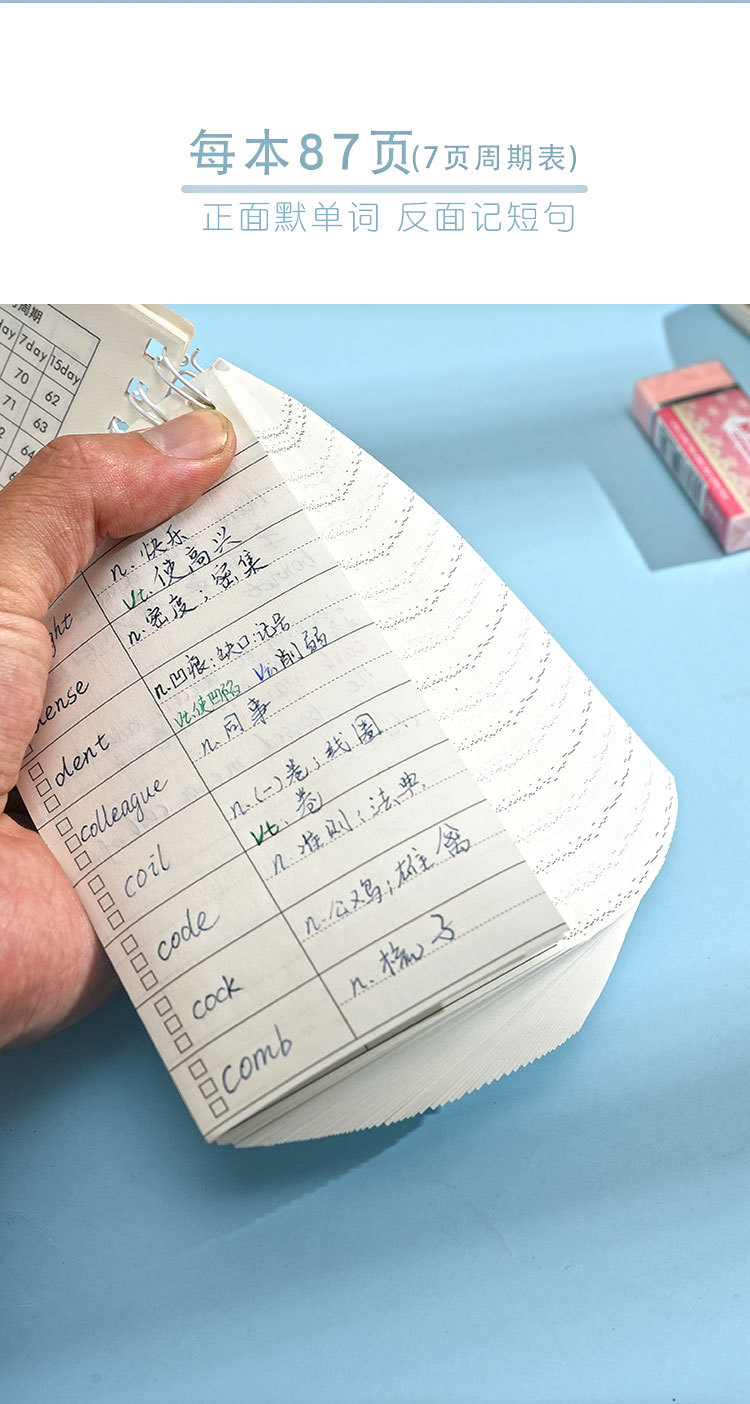 每本87页(7页周期表)
正面默单词 反面记短句
周期
day 7day 15day
70 62
71 63
64
n. 快乐
ght Vt. 使高兴
dense n. 密度；密集
dent n. 凹痕；缺口；记号
Vt. 使凹陷 Vi. 削弱
colleague n. 同事
coil n. (一)卷；线圈
Vt. 卷
code n. 准则；法典
cock n. 公又鸟；雄禽
comb n. 梳子